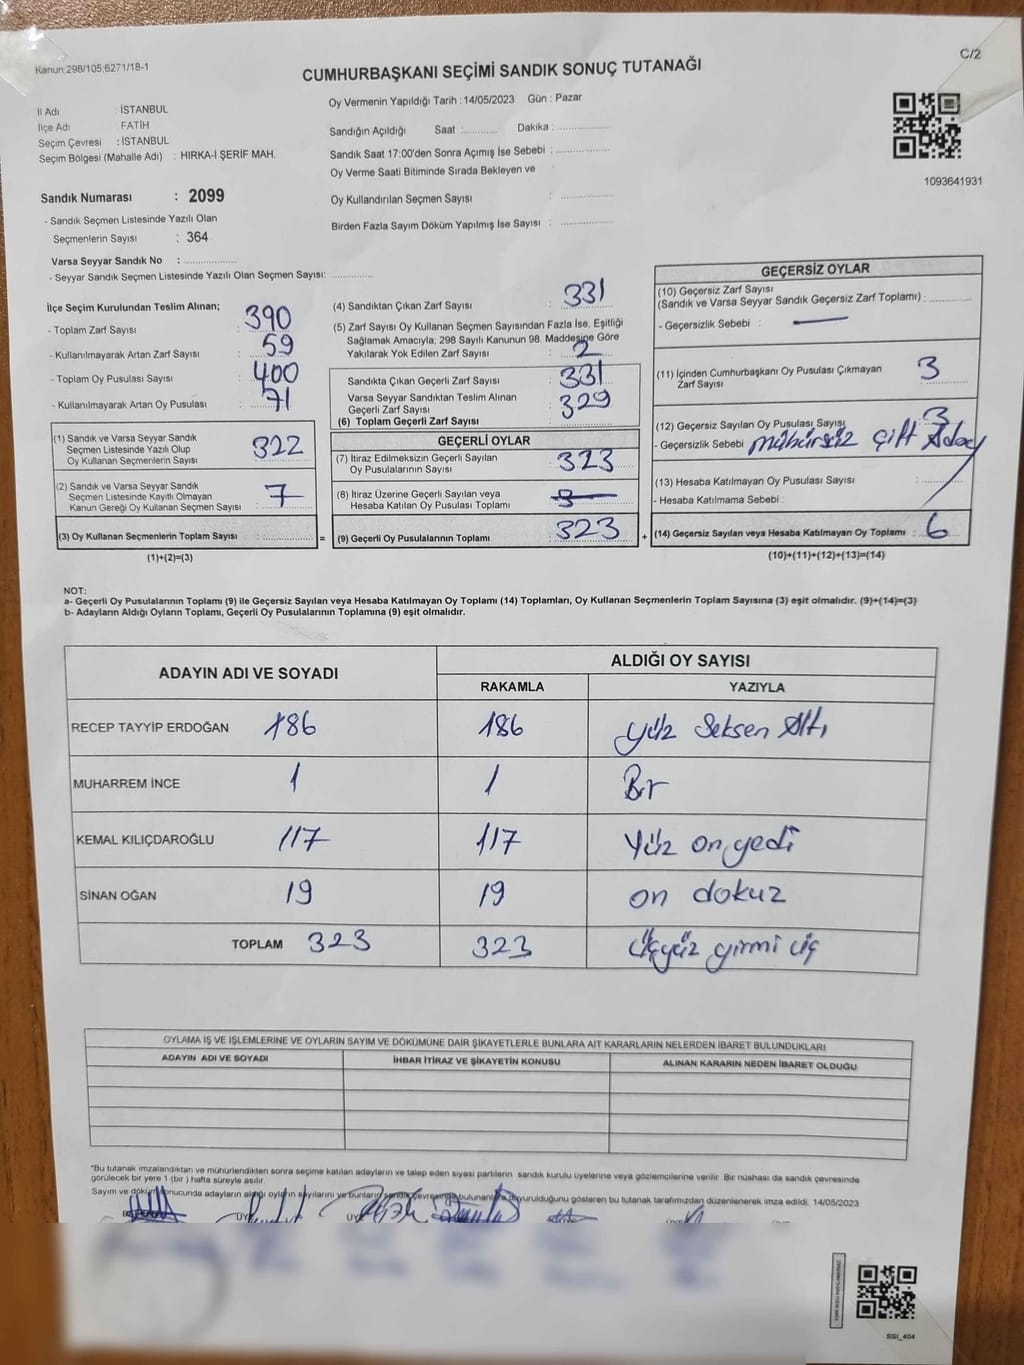 Kanun:298/105;6271/18-1
C/2
CUMHURBAŞKANI SEÇİMİ SANDIK SONUÇ TUTANAĞI
İl Adı : İSTANBUL
İlçe Adı FATİH
Seçim Çevresi : İSTANBUL
Seçim Bölgesi (Mahalle Adı) : HIRKA-İ ŞERİF MAH.
Oy Vermenin Yapıldığı Tarih : 14/05/2023 Gün : Pazar
Sandığın Açıldığı Saat :............ Dakika :................
Sandık Saat 17:00'den Sonra Açımış İse Sebebi :................
Oy Verme Saati Bitiminde Sırada Bekleyen ve
Oy Kullandırılan Seçmen Sayısı :................
Birden Fazla Sayım Döküm Yapılmış İse Sayısı :................
1093641931
Sandık Numarası : 2099
- Sandık Seçmen Listesinde Yazılı Olan
Seçmenlerin Sayısı : 364
Varsa Seyyar Sandık No :................
- Seyyar Sandık Seçmen Listesinde Yazılı Olan Seçmen Sayısı:............
İlçe Seçim Kurulundan Teslim Alınan;
- Toplam Zarf Sayısı : 390
- Kullanılmayarak Artan Zarf Sayısı : 59
- Toplam Oy Pusulası Sayısı : 400
- Kullanılmayarak Artan Oy Pusulası : 71
(1) Sandık ve Varsa Seyyar Sandık
Seçmen Listesinde Yazılı Olup
Oy Kullanan Seçmenlerin Sayısı : 322
(2) Sandık ve Varsa Seyyar Sandık
Seçmen Listesinde Kayıtlı Olmayan
Kanun Gereği Oy Kullanan Seçmen Sayısı : 7
(3) Oy Kullanan Seçmenlerin Toplam Sayısı :................ =
(1)+(2)=(3)
(4) Sandıktan Çıkan Zarf Sayısı : 331
(5) Zarf Sayısı Oy Kullanan Seçmen Sayısından Fazla İse, Eşitliği
Sağlamak Amacıyla; 298 Sayılı Kanunun 98. Maddesine Göre
Yakılarak Yok Edilen Zarf Sayısı : 2
Sandıkta Çıkan Geçerli Zarf Sayısı : 331
Varsa Seyyar Sandıktan Teslim Alınan
Geçerli Zarf Sayısı : 329
(6) Toplam Geçerli Zarf Sayısı
GEÇERLİ OYLAR
(7) İtiraz Edilmeksizin Geçerli Sayılan
Oy Pusulalarının Sayısı : 323
(8) İtiraz Üzerine Geçerli Sayılan veya
Hesaba Katılan Oy Pusulası Toplamı :
(9) Geçerli Oy Pusulalarının Toplamı : 323 +
GEÇERSİZ OYLAR
(10) Geçersiz Zarf Sayısı
(Sandık ve Varsa Seyyar Sandık Geçersiz Zarf Toplamı) :............
- Geçersizlik Sebebi : —
(11) İçinden Cumhurbaşkanı Oy Pusulası Çıkmayan
Zarf Sayısı : 3
(12) Geçersiz Sayılan Oy Pusulası Sayısı : 3
- Geçersizlik Sebebi mühürsüz çift Aday
(13) Hesaba Katılmayan Oy Pusulası Sayısı :
- Hesaba Katılmama Sebebi :
(14) Geçersiz Sayılan veya Hesaba Katılmayan Oy Toplamı : 6
(10)+(11)+(12)+(13)=(14)
NOT:
a- Geçerli Oy Pusulalarının Toplamı (9) ile Geçersiz Sayılan veya Hesaba Katılmayan Oy Toplamı (14) Toplamları, Oy Kullanan Seçmenlerin Toplam Sayısına (3) eşit olmalıdır. (9)+(14)=(3)
b- Adayların Aldığı Oyların Toplamı, Geçerli Oy Pusulalarının Toplamına (9) eşit olmalıdır.
ADAYIN ADI VE SOYADI
ALDIĞI OY SAYISI
RAKAMLA YAZIYLA
RECEP TAYYİP ERDOĞAN 186 186 Yüz Seksen Altı
MUHARREM İNCE 1 1 Bir
KEMAL KILIÇDAROĞLU 117 117 Yüz on yedi
SİNAN OĞAN 19 19 on dokuz
TOPLAM 323 323 Üçyüz yirmi üç
OYLAMA İŞ VE İŞLEMLERİNE VE OYLARIN SAYIM VE DÖKÜMÜNE DAİR ŞİKAYETLERLE BUNLARA AİT KARARLARIN NELERDEN İBARET BULUNDUKLARI
ADAYIN ADI VE SOYADI İHBAR İTİRAZ VE ŞİKAYETİN KONUSU ALINAN KARARIN NEDEN İBARET OLDUĞU
*Bu tutanak imzalandıktan ve mühürlendikten sonra seçime katılan adayların ve talep eden siyasi partilerin sandık kurulu üyelerine veya gözlemcilerine verilir. Bir nüshası da sandık çevresinde
görülecek bir yere 1 (bir ) hafta süreyle asılır.
Sayım ve döküm sonucunda adayların aldığı oyların sayılarını ve bunların sandık çevresinde bulunanlara duyurulduğunu gösteren bu tutanak tarafımızdan düzenlenerek imza edildi. 14/05/2023
SSI_404